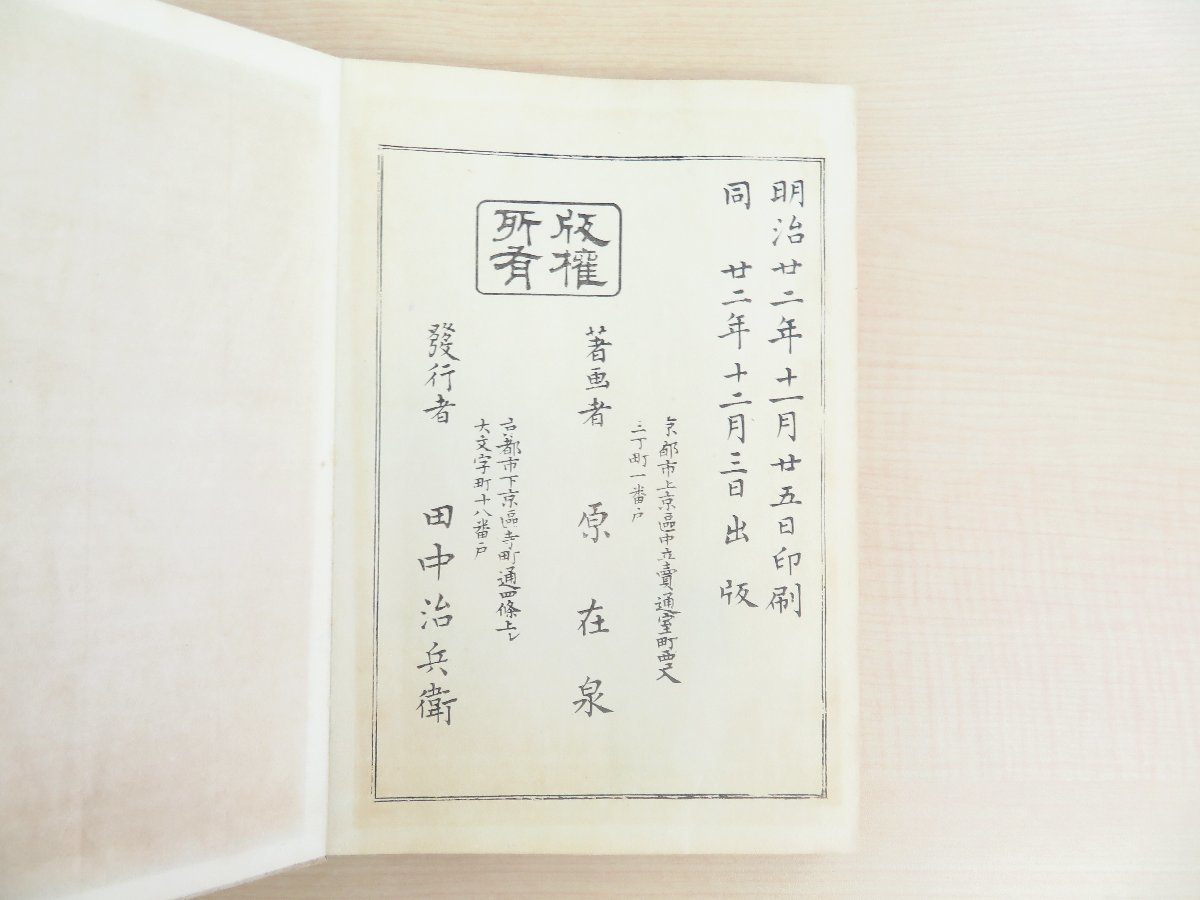 明治廿二年十一月廿五日印刷
同 廿二年十二月三日出版
版權
所有
京都市上京區中立賣通室町西入
三丁町一番戸
著画者 原在泉
京都市下京區寺町通四條上ル
大文字町十八番戸
發行者 田中治兵衛